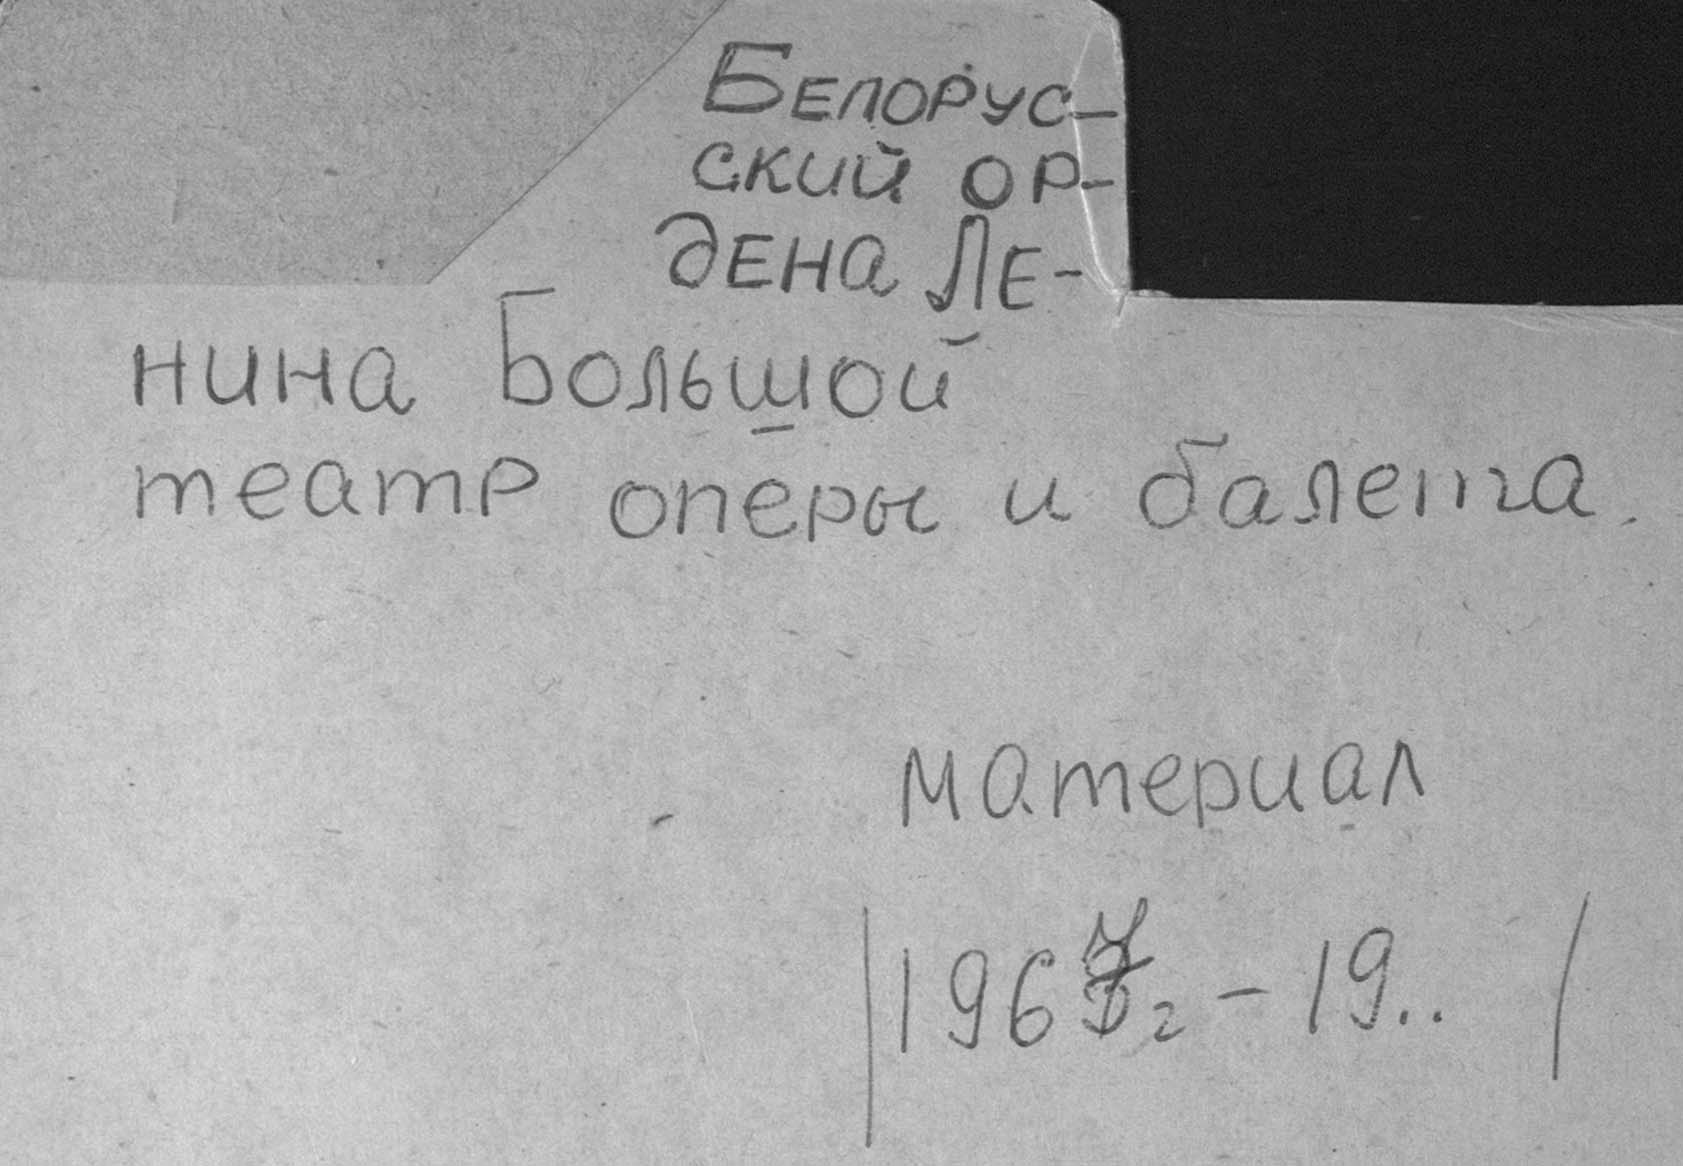 Белорус-
ский ор-
дена Ле-
нина Большой
театр оперы и балета.
материал
|1967г - 19.. |